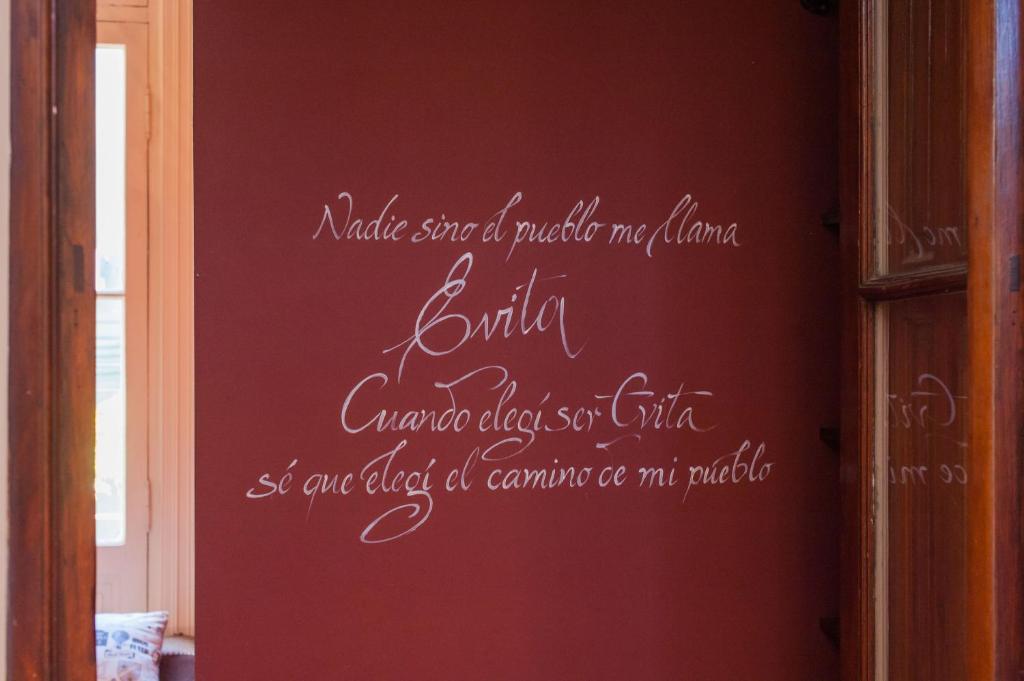 Nadie sino el pueblo me llama
Evita
Cuando elegí ser Evita
sé que elegí el camino de mi pueblo